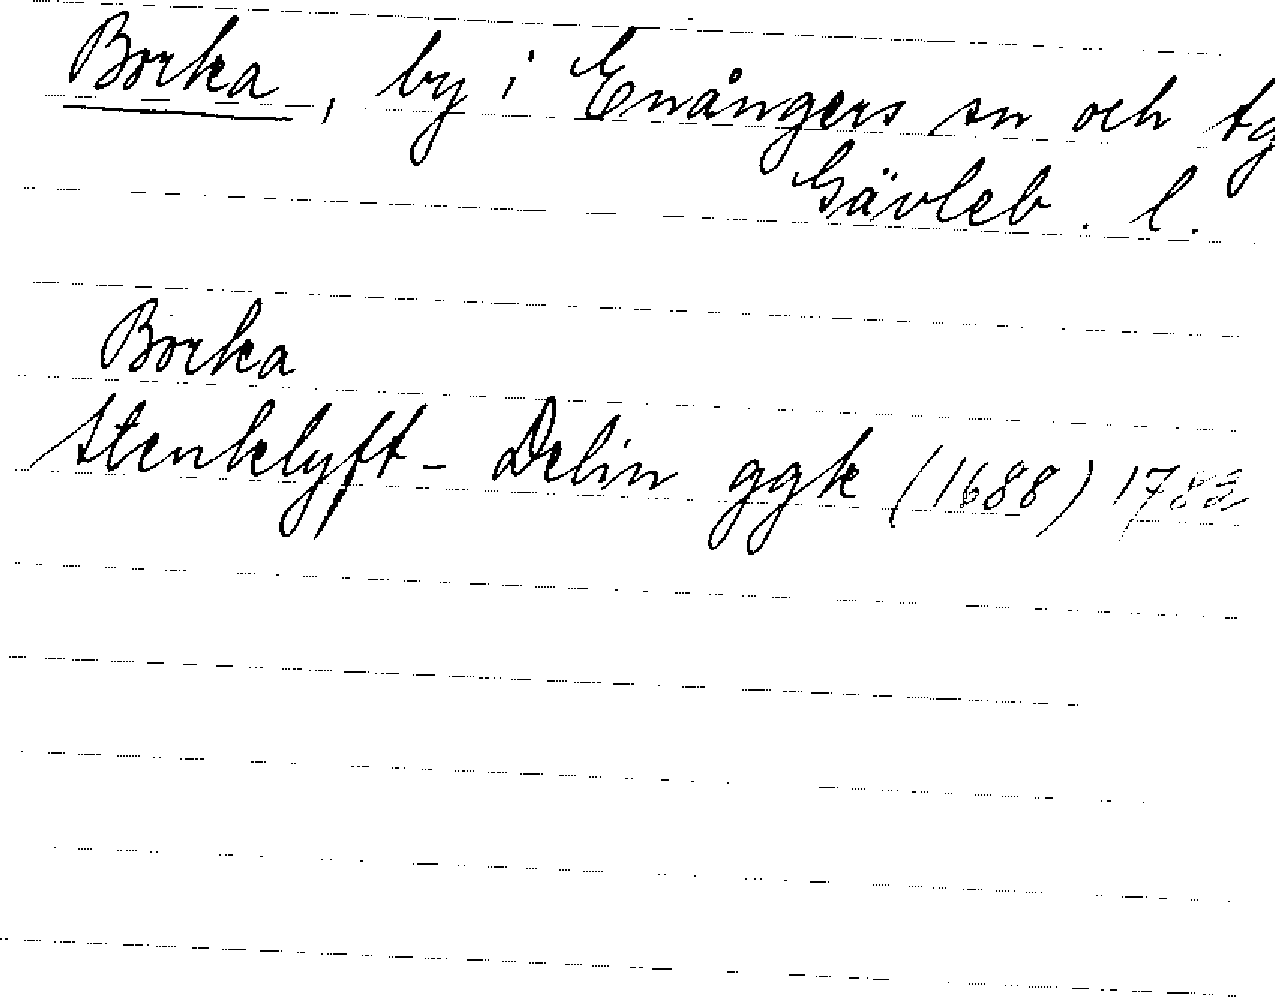 Borka, by i Enångers sn och tg
Gävleb. l.
Borka
Stenklyft - Delin ggk (1688)